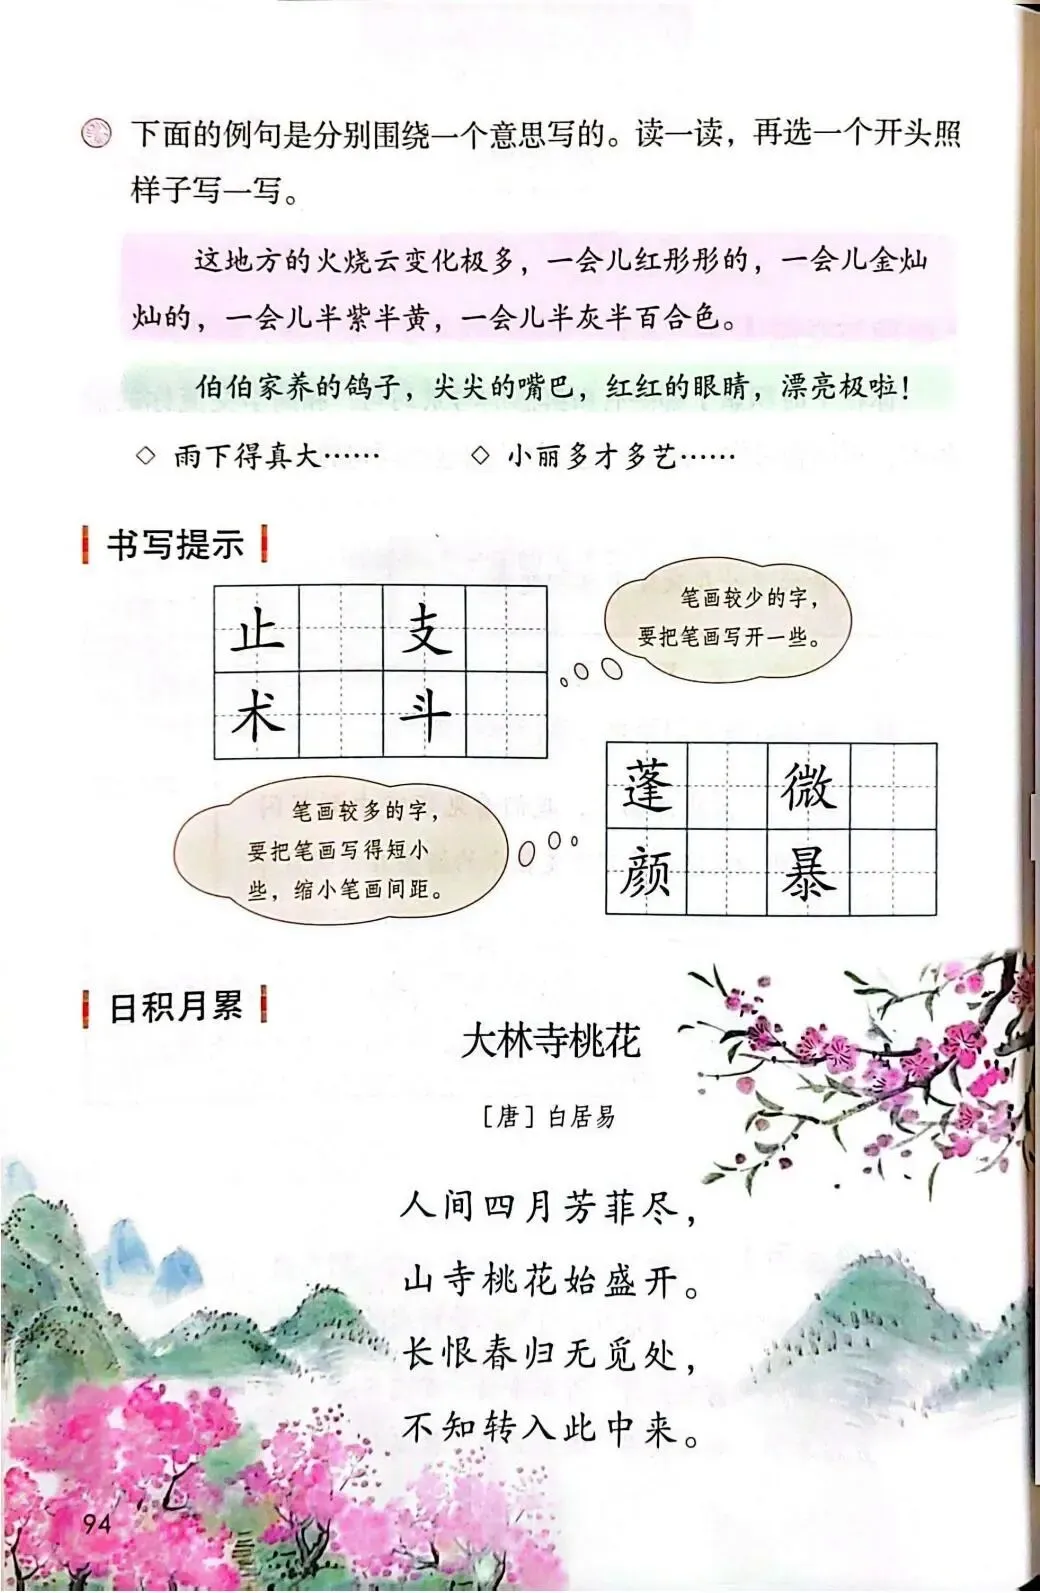 下面的例句是分别围绕一个意思写的。读一读，再选一个开头照
样子写一写。
这地方的火烧云变化极多，一会儿红彤彤的，一会儿金灿
灿的，一会儿半紫半黄，一会儿半灰半百合色。
伯伯家养的鸽子，尖尖的嘴巴，红红的眼睛，漂亮极啦！
◇ 雨下得真大…… ◇ 小丽多才多艺……
书写提示
止 支
术 斗
笔画较少的字，
要把笔画写开一些。
蓬 微
颜 暴
笔画较多的字，
要把笔画写得短小
些，缩小笔画间距。
日积月累
大林寺桃花
［唐］白居易
人间四月芳菲尽，
山寺桃花始盛开。
长恨春归无觅处，
不知转入此中来。
94